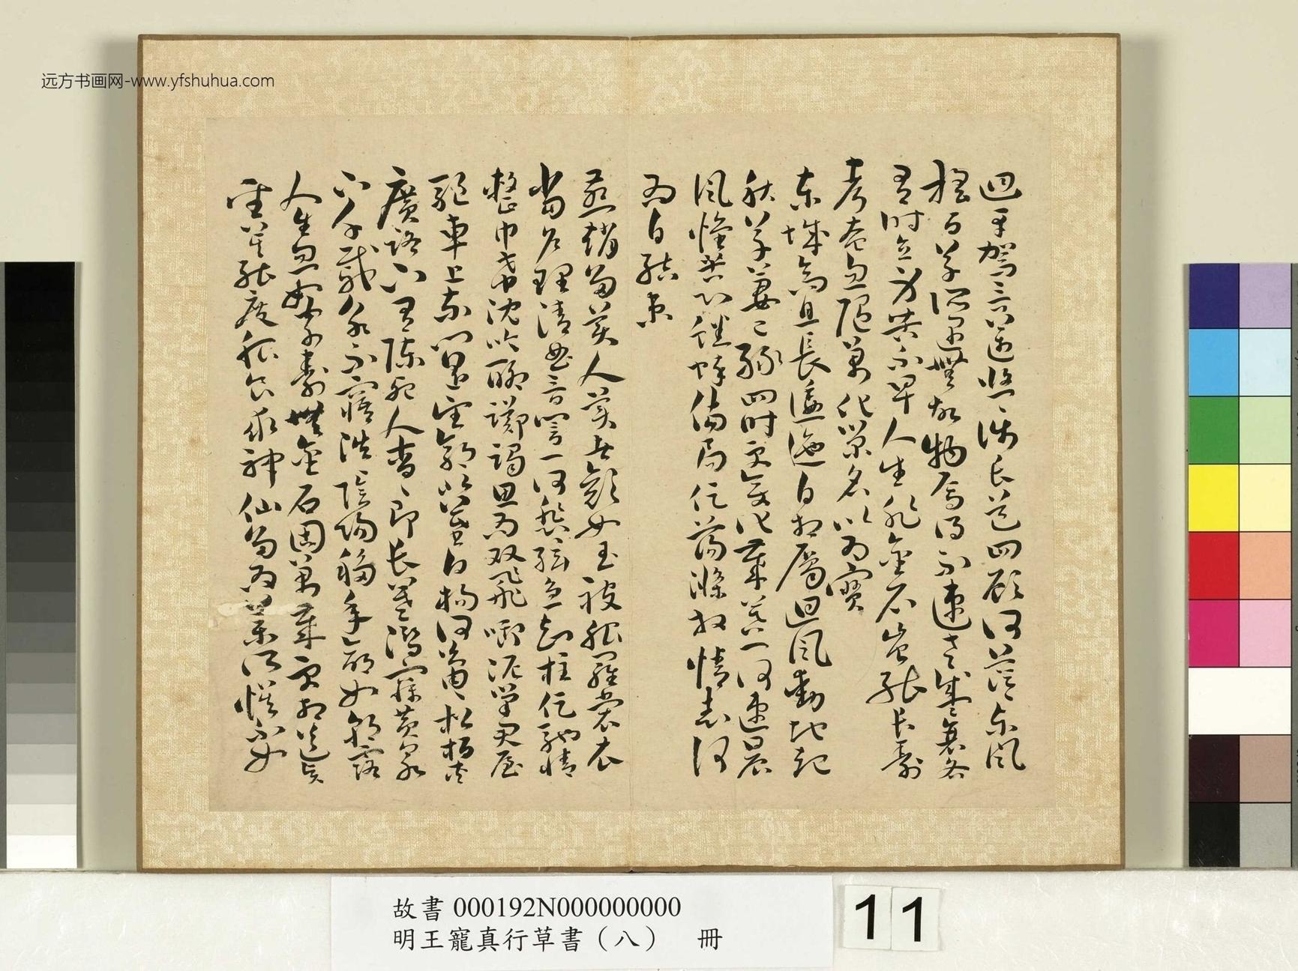 迴車駕言邁悠悠涉長道四顧何茫茫東風
搖百草所遇無故物焉得不速老盛衰各
有時立身苦不早人生非金石豈能長壽
考奄忽隨萬化榮名以為寶
東城高且長逶迤自相屬迴風動地起
秋草萋已綠四時更變化歲暮一何速晨
風懷苦心蟋蟀傷局促蕩滌放情志何
為自結束
燕趙多美人美者顏如玉被服羅裳衣
當戶理清曲音響一何悲弦急知柱促馳情
整巾帶沈吟聊躑躅思為双飛啣泥巢君屋
驅車上東門遙望郭北墓白楊何蕭蕭松栢夾
廣路下有陳死人杳杳即長暮潛寐黃泉
下千載永不寤浩浩陰陽移年命如朝露
人生忽如寄壽無金石固萬歲更相送賢
聖莫能度服食求神仙多為藥所誤不如
远方书画网-www.yfshuhua.com
故書 000192N000000000
明王寵真行草書（八） 冊
11